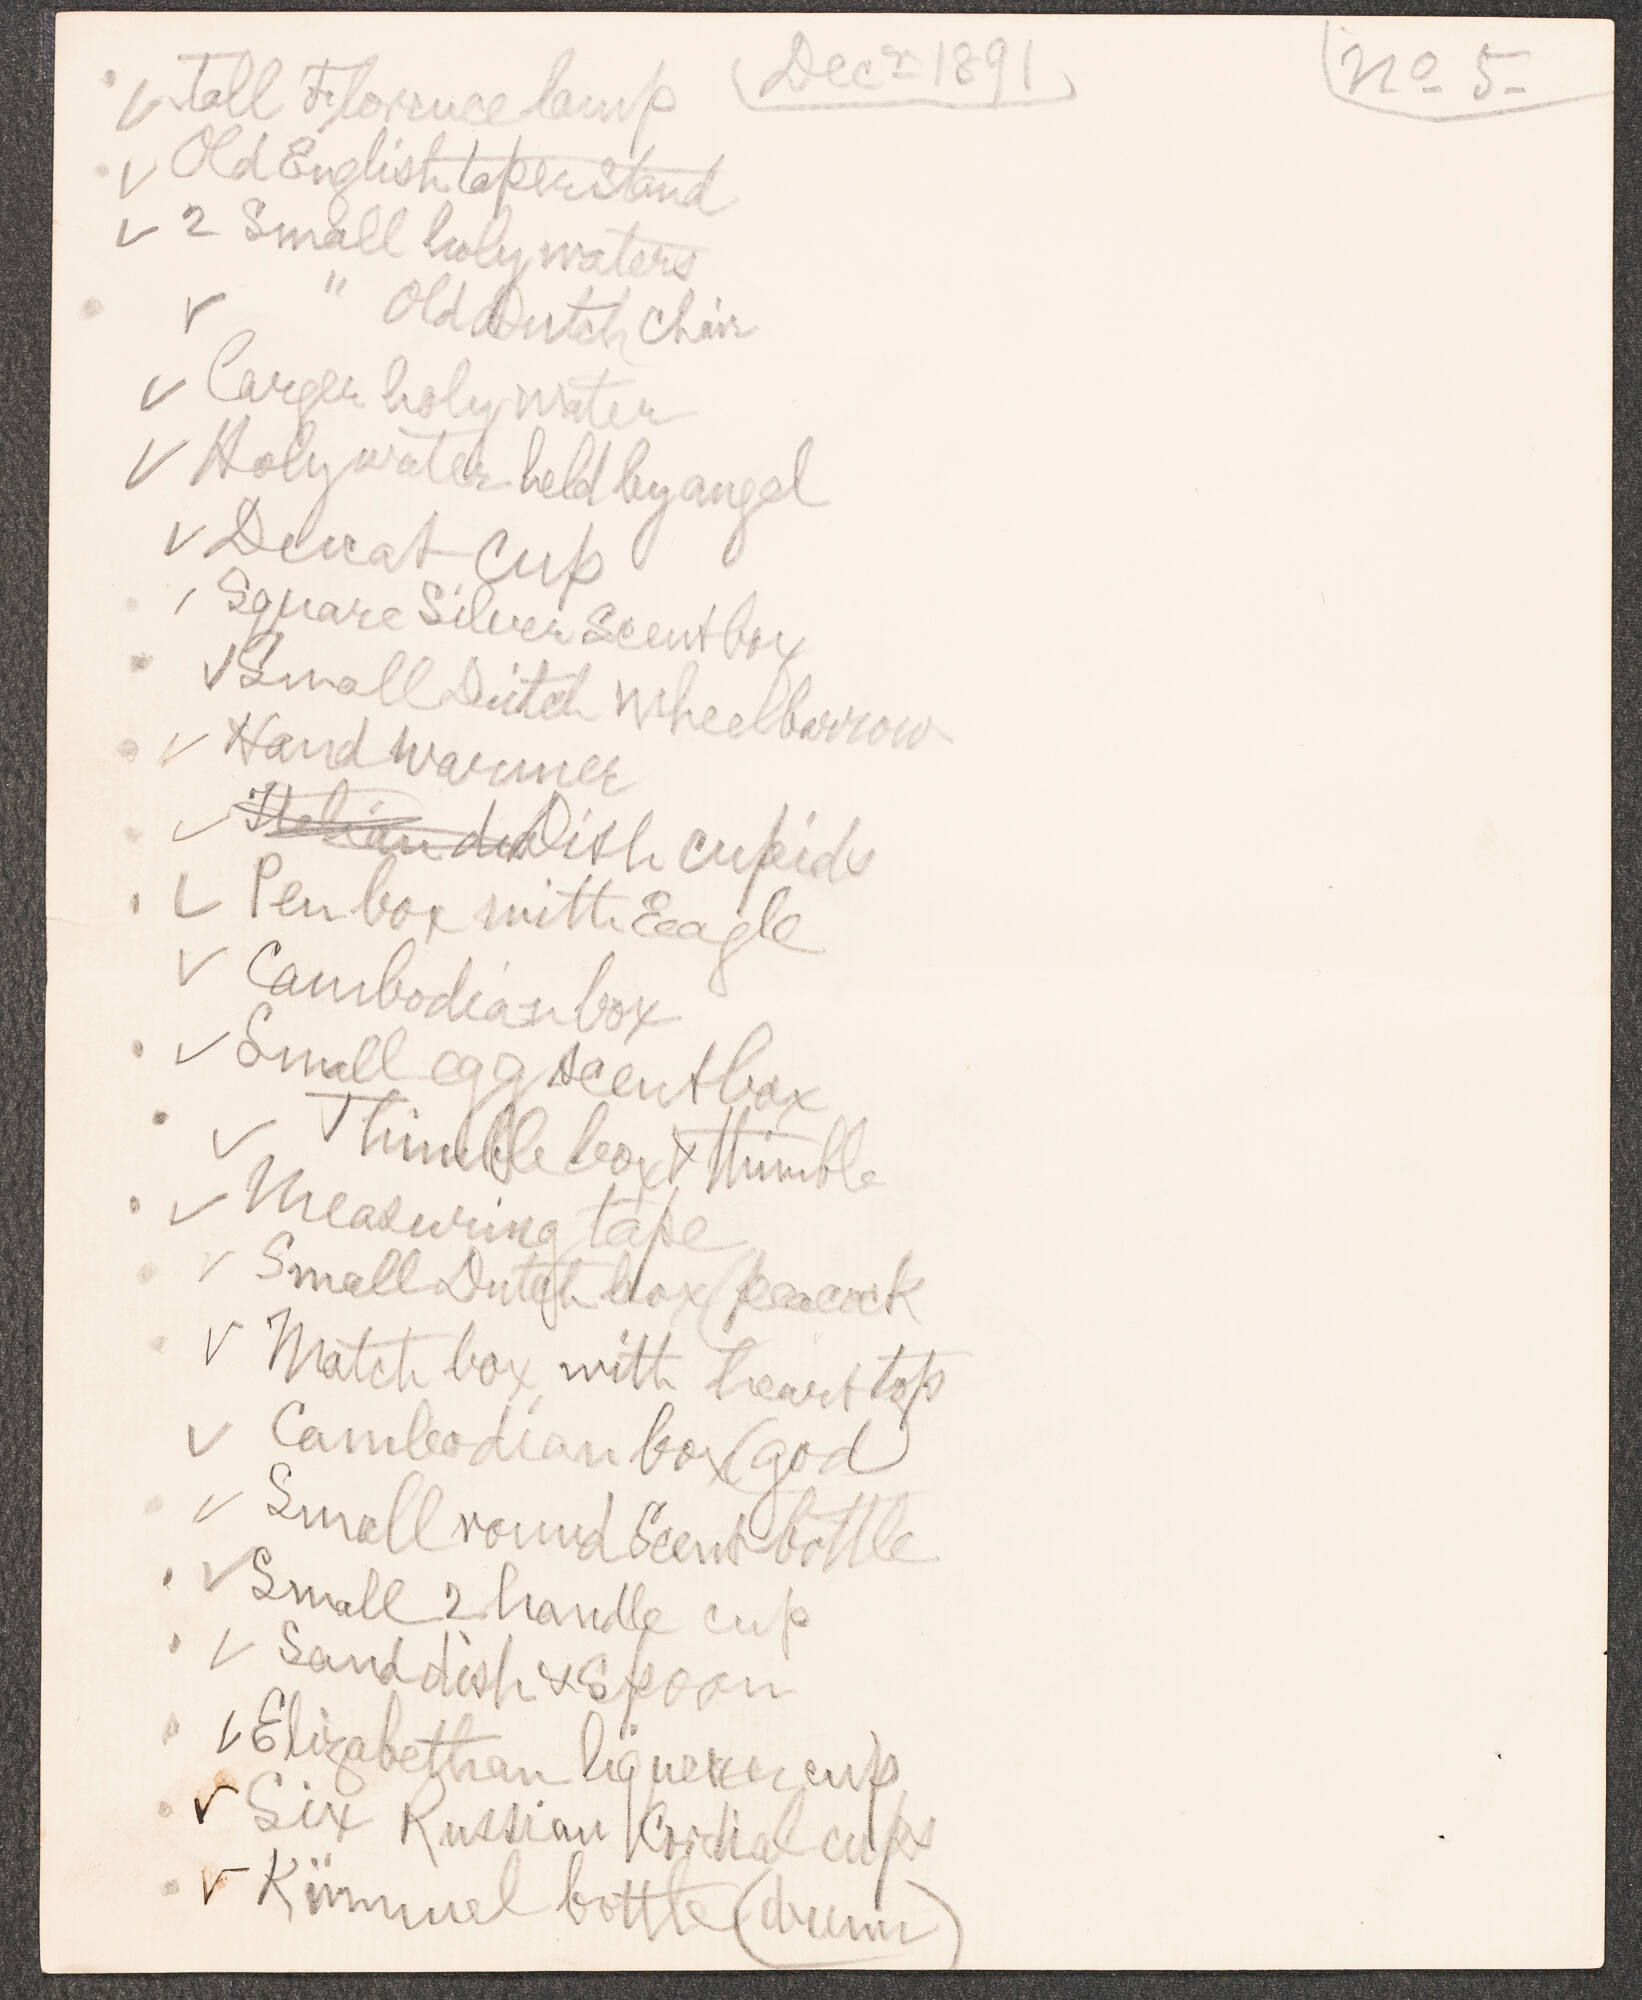 Decr 1891
No 5
Tall Florence lamp
Old English taper stand
2 Small holy waters
" Old Dutch Chair
Larger holy water
Holy water held by angel
Ducat Cup
Square Silver Scent box
Small Dutch Wheelbarrow
Hand warmer
Italian dis Dish cupids
Pen box with Eeagle
Cambodian box
Small egg scent box
Thimble box & thimble
Measuring tape
Small Dutch box (peacock
Match box with heart top
Cambodian box (god)
Small round Scent bottle
Small 2 handle cup
Sand dish & Spoon
Elizabethan liqueur cup
Six Russian Cordial cups
Kümmel bottle (drum)